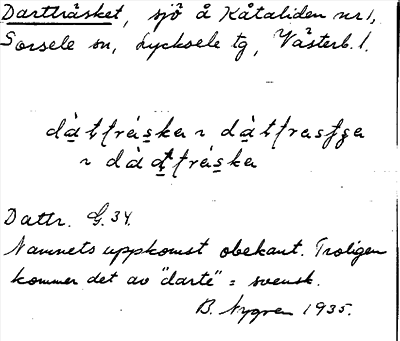 Dartträsket, sjö å Kåtaliden nr 1,
Sorsele sn, Lycksele tg, Västerb. l.
dàt,tráska ~ dàttraska
~ dàdtráska
Dattr. G. 34.
Namnets uppkomst obekant. Troligen
kommer det av "darte" = svensk.
B. Nygren 1935.